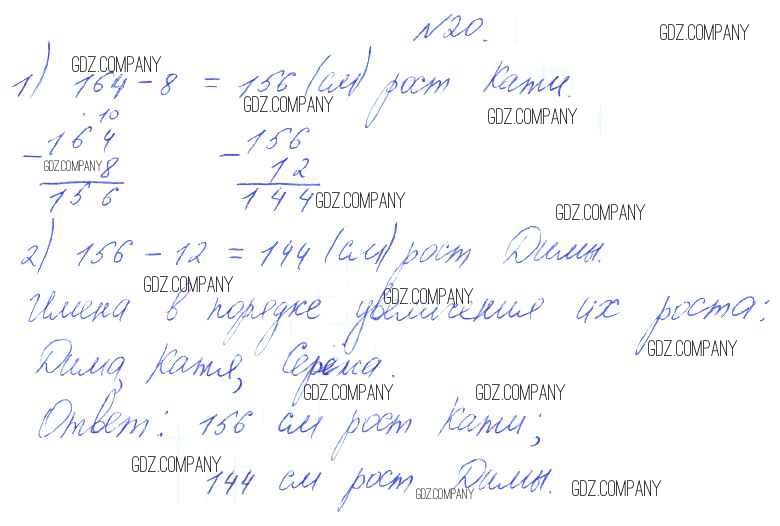 №20.
GDZ.COMPANY
GDZ.COMPANY
1) 164 - 8 = 156 (см) рост Кати.
GDZ.COMPANY
GDZ.COMPANY
10
- 164 - 156
GDZ.COMPANY 8 12
156 144 GDZ.COMPANY
GDZ.COMPANY
2) 156 - 12 = 144 (см) рост Димы.
GDZ.COMPANY
GDZ.COMPANY
Имена в порядке увеличения их роста:
GDZ.COMPANY
Дима, Катя, Серёжа.
GDZ.COMPANY GDZ.COMPANY
Ответ: 156 см рост Кати;
GDZ.COMPANY
144 см рост Димы.
GDZ.COMPANY GDZ.COMPANY